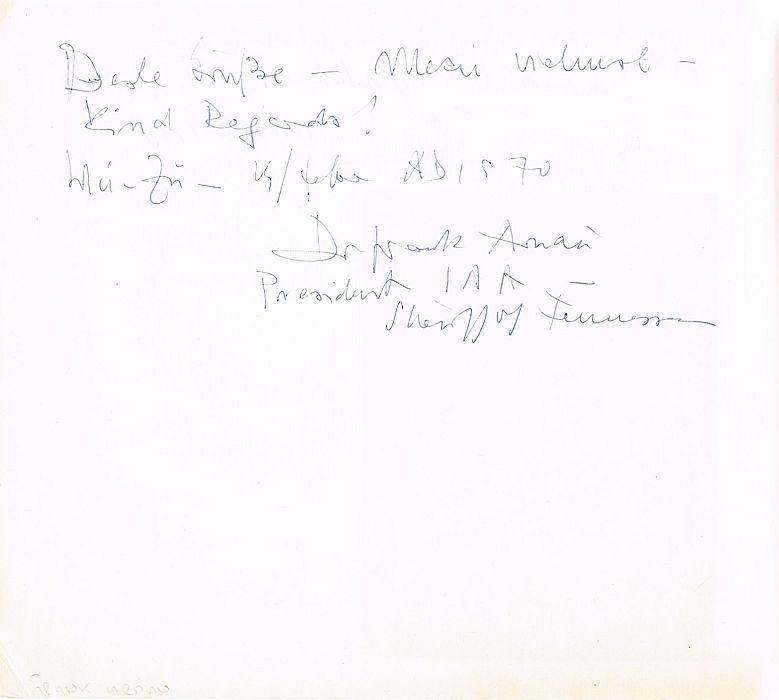 Beste Grüße – Merci vielmol –
Kind Regards!
Mü-Zü – 14/ AD 1970
Dr Frank Arnau
President IAA –
Sheriff of Tennessee
FRANK ARNAU